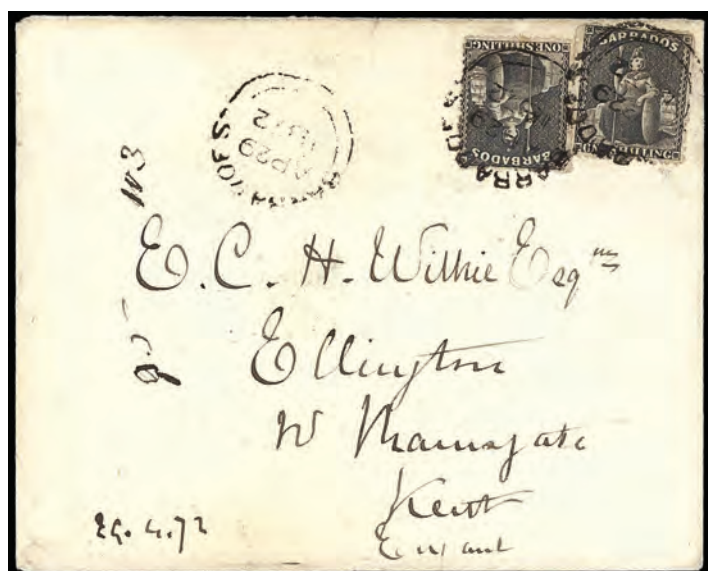 BARBADOS
ONE SHILLING
BARBADOS
ONE SHILLING
BARBADOES
AP 29
1872
E. C. H. Wilkie Esqre
Ellington
Nr Ramsgate
Kent
England
29.4.72